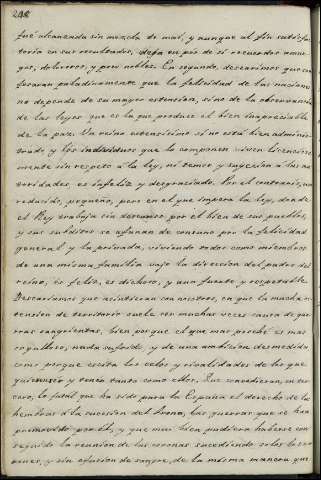 248
fué alcanzada sin mezcla de mal, y aunque al fin satisfac-
toria en sus resultados, deja en pos de sí recuerdos amar-
gos, dolorosos, y poco nobles. En segundo, desearíamos que con
fesaran paladinamente que la felicidad de las naciones
no depende de su mayor estension, sino de la observancia
de las leyes que es la que produce el bien inapreciable
de la paz. Un reino estensísimo si no está bien adminis-
trado y los individuos que lo componen viven licenciosa
mente sin respeto á la ley, ni temor y sujecion á las au
toridades es infeliz y desgraciado. Por el contrario, un
reducido, pequeño, pero en el que impera la ley, donde
el Rey trabaja sin descanso por el bien de sus pueblos,
y sus súbditos se afanan de consuno por la felicidad
general y la privada, viviendo todos como miembros
de una misma familia bajo la direccion del padre del
reino, es feliz, es dichoso, y aun fuerte y respetable.
Desearíamos que asintieran con nosotros, en que la mucha es
tension de territorio suele ser muchas veces causa de gue
rras sangrientas, bien porque el que mas posée es mas
orgulloso, nada sufrido y de una ambicion desmedida
como porque escita los celos y rivalidades de los que
quisieran y tener tanto como ellos. Que concedieran, en ter
cero, lo fatal que ha sido para la España el derecho de las
hembras á la sucesion del trono, las guerras que se han
promovido por él, y que mas bien pudiera haberse con
seguido la reunion de las coronas sucediendo solos los va
rones, y sin efusion de sangre, de la misma manera que